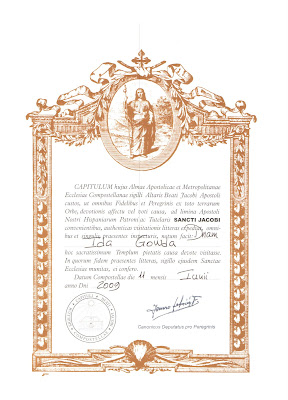 CAPITULUM hujus Almae Apostolicae et Metropolitanae
Ecclesiae Compostellanae sigilli Altaris Beati Jacobi Apostoli
custos, ut omnibus Fidelibus et Peregrinis ex toto terrarum
Orbe, devotionis affectu vel voti causa, ad limina Apostoli
Nostri Hispaniarum Patroni ac Tutelaris SANCTI JACOBI
convenientibus, authenticas visitationis litteras expediat, omni-
bus et singulis praesentes inspecturis, notum facit: Dnam
Ida Gouda
hoc sacratissimum Templum pietatis causa devote visitasse.
In quorum fidem praesentes litteras, sigillo ejusdem Sanctae
Ecclesiae munitas, ei confero.
Datum Compostellae die 11 mensis Iunii
anno Dni 2009
Canonicus Deputatus pro Peregrinis